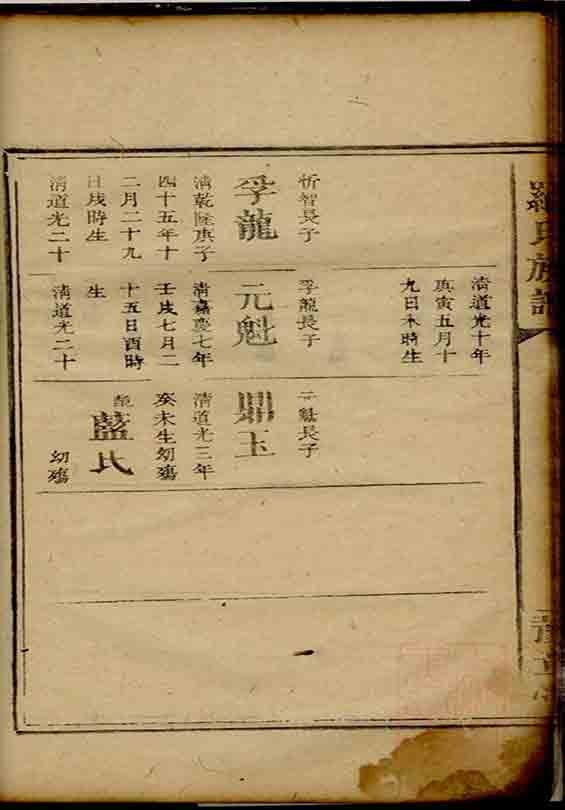 羅氏族譜
清道光十年
庚寅五月十
九日未時生
忻智長子
孚龍
清乾隆庚子
四十五年十
二月二十九
日戌時生
清道光二十
孚龍長子
元魁
清嘉慶七年
壬戌七月二
十五日酉時
生
清道光二十
元魁長子
鼎玉
清道光三年
癸未生幼殤
配
藍氏
幼殤